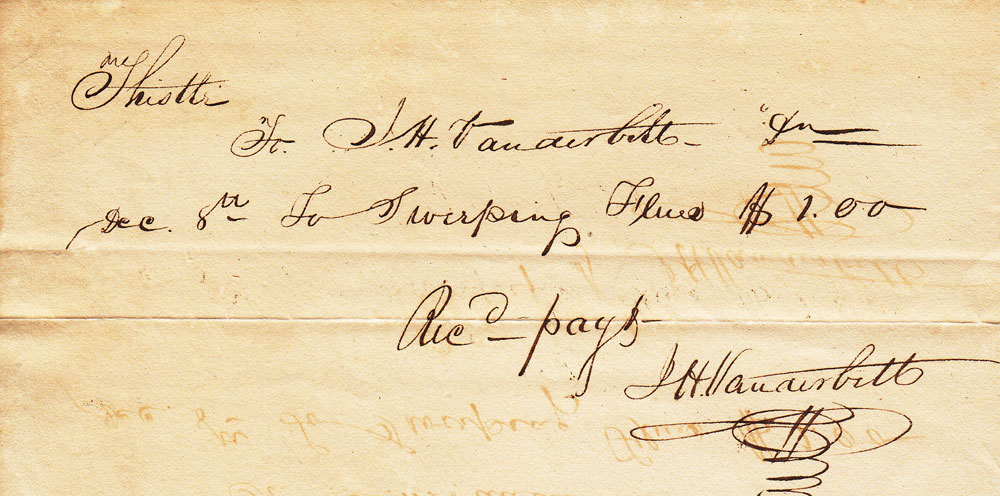 To. J. H. Vanderbilt
Dec. 8th To Sweeping Flues $ 1.00
Recd payt
J H. Vanderbilt